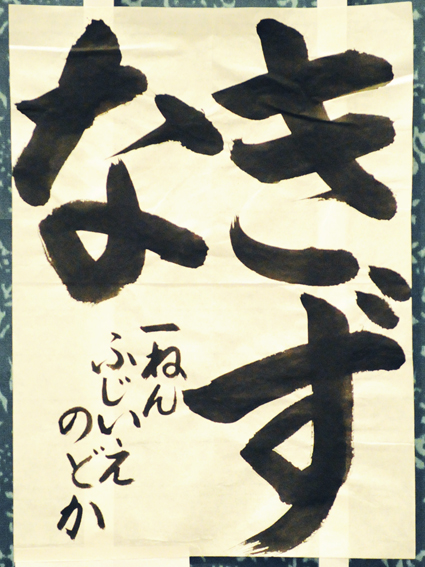 きず
な
一ねん
ふじいえ
のどか